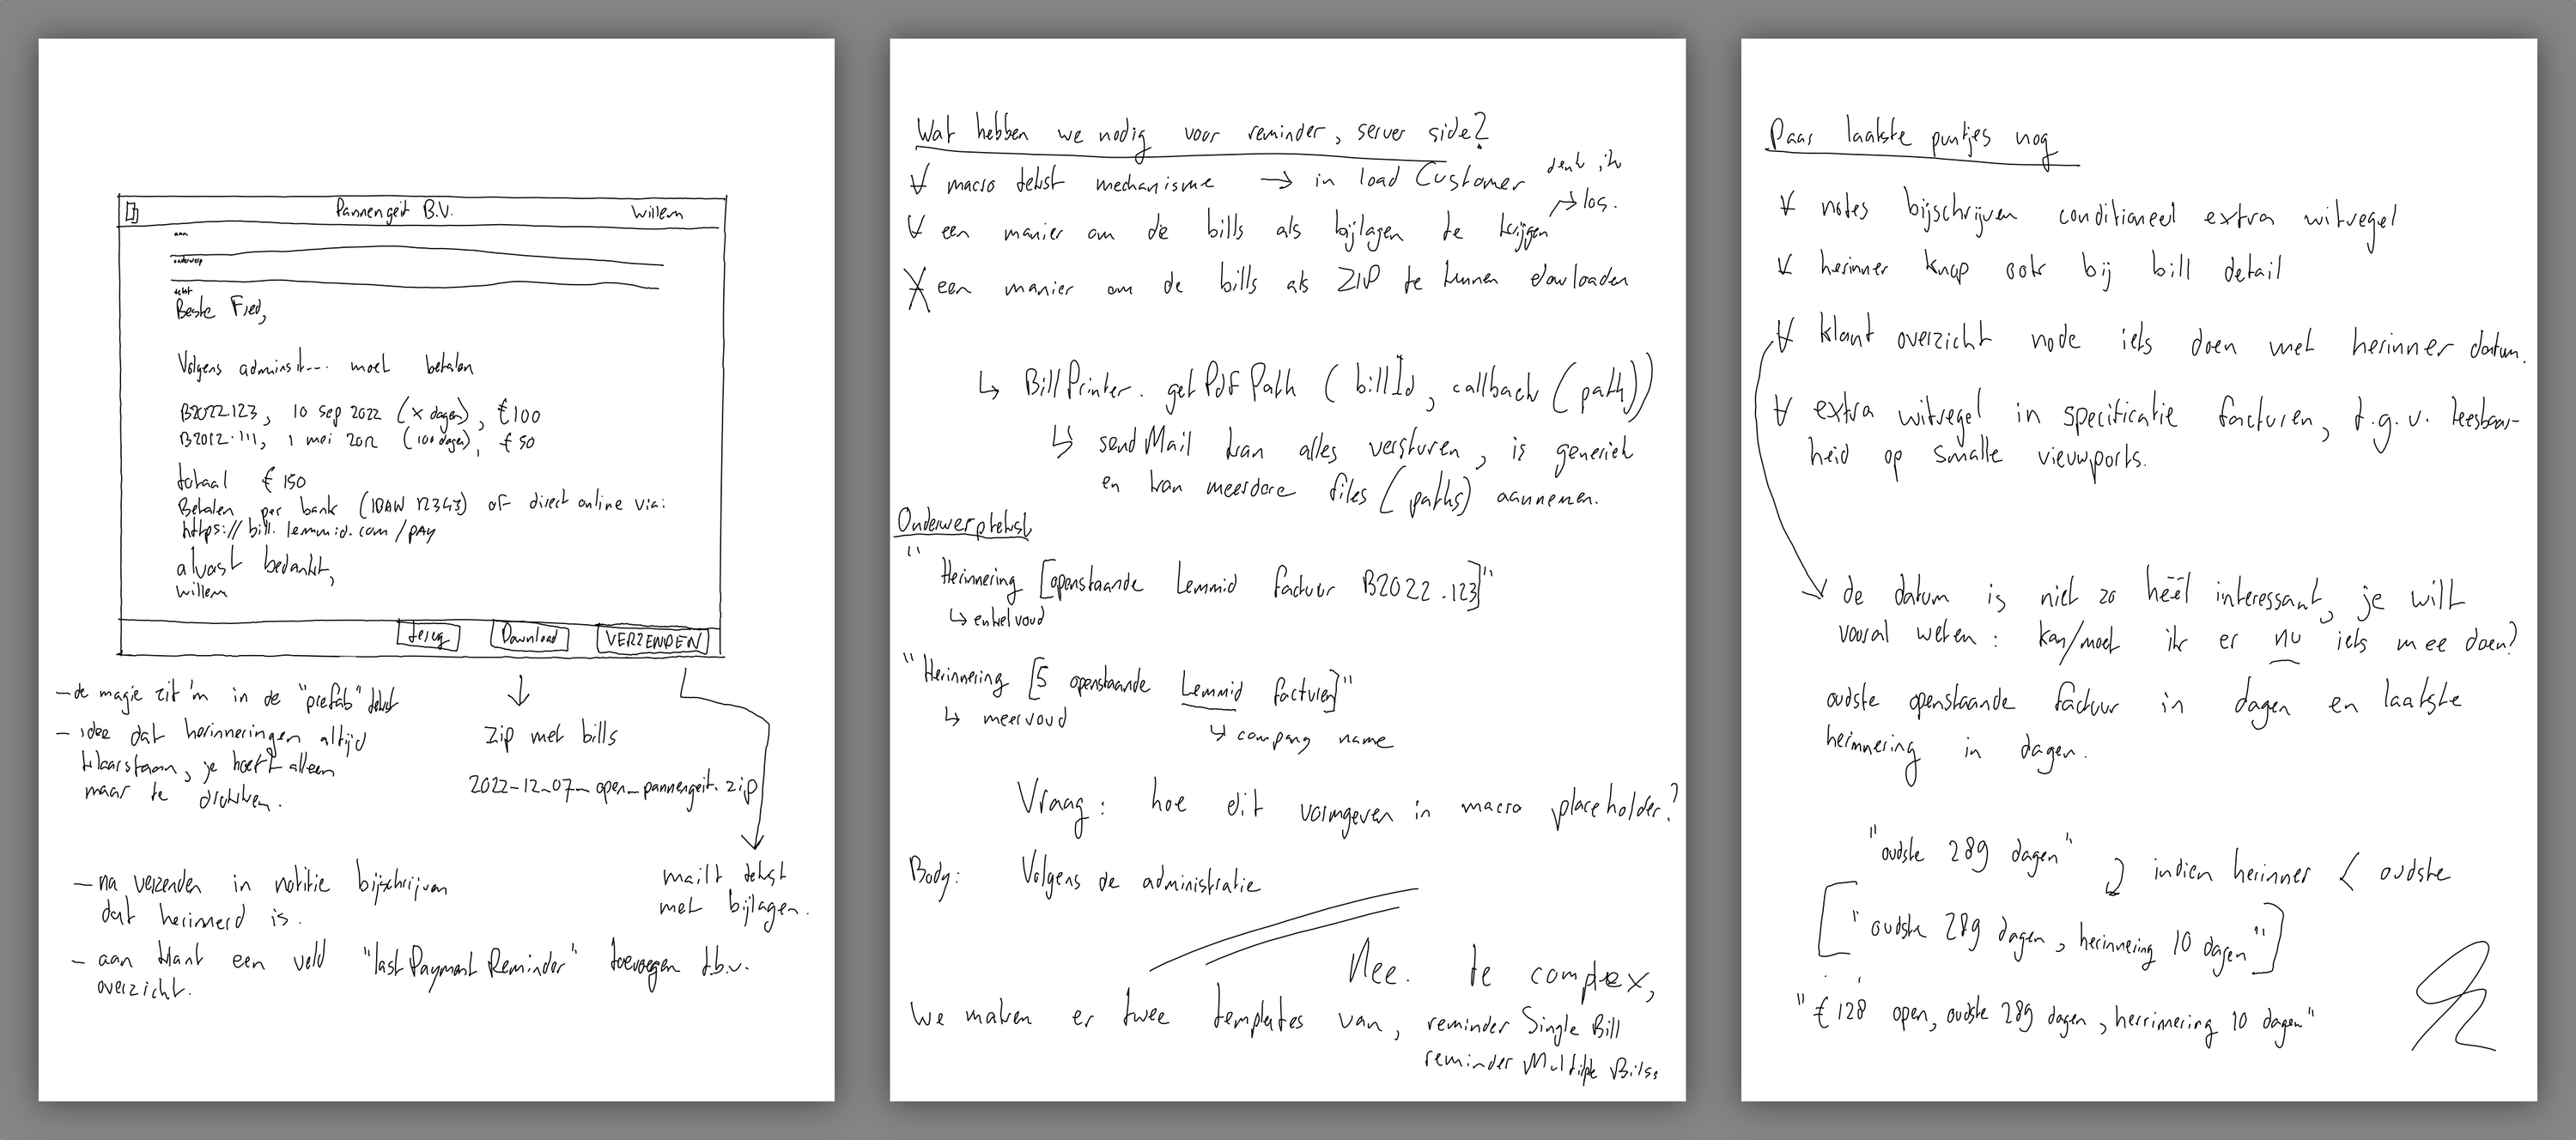 Pannengeit B.V.
Willem
aan
onderwerp
tekst
Beste Fred,
Volgens adminsit.... moet betalen
B2022.123, 10 sep 2022 (x dagen), €100
B2012.111, 1 mei 2012 (100 dagen), €50
totaal €150
Betalen per bank (IBAN 12343) of direct online via:
https://bill.lemmid.com/pay
alvast bedankt,
willem
terug
Download
VERZENDEN
- de magie zit 'm in de "prefab" tekst
- idee dat herinneringen altijd
klaarstaan, je hoeft alleen
maar te drukken.
zip met bills
2022-12-07-open-pannengeit.zip
mailt tekst
met bijlagen.
- na verzenden in notitie bijschrijven
dat herinnerd is.
- aan klant een veld "last Payment Reminder" toevoegen t.b.v.
overzicht.
Wat hebben we nodig voor reminder, server side?
macro tekst mechanisme → in load Customer denk ik
een manier om de bills als bijlagen te krijgen → los.
een manier om de bills als ZIP te kunnen dowloaden
↳ BillPrinter.getPdfPath (billId, callback (path))
↳ sendMail kan alles versturen, is generiek
en kan meerdere files (paths) aannemen.
Onderwerptekst
"Herinnering [openstaande Lemmid factuur B2022.123]"
↳ enkelvoud
"Herinnering [5 openstaande Lemmid facturen]"
↳ meervoud
↳ company name
Vraag: hoe dit vormgeven in macro placeholder?
Body: Volgens de administratie
Nee. te complex,
We maken er twee templates van, reminder Single Bill
reminder Multiple Bilss
Paar laatste puntjes nog
notes bijschrijven conditioneel extra witregel
herinner knop ook bij bill detail
klant overzicht node iets doen met herinner datum.
extra witregel in specificatie facturen, t.g.v. leesbaar-
heid op smalle vieuwports.
de datum is niet zo héél interessant, je wilt
vooral weten: kan/moet ik er nu iets mee doen?
oudste openstaande factuur in dagen en laatste
herinnering in dagen.
"oudste 289 dagen"
indien herinner < oudste
["oudste 289 dagen, herinnering 10 dagen"]
"€128 open, oudste 289 dagen, herrinnering 10 dagen"